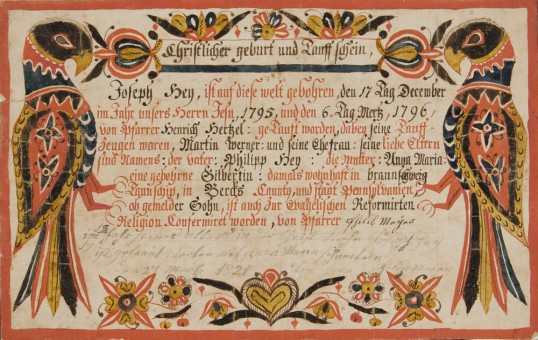 Christlicher geburt und Tauff schein,
Joseph Hey, ist auf diese welt gebohren, den 17 Tag December
im Jahr unsers Herrn Jesu, 1795, und den 6. Tag Mertz, 1796,
von Pfarrer Henrich Hertzel: ge Taufft worden, daben seine Tauff-
Zeugen waren, Martin Werner: und seine Ehefrau: seine liebe Eltern
sind Namens: der vater: Philipp Hey: die Mutter: Anna Maria:
eine gebohrne Gilbertin: damals wohnhafft in braunschweig
Taunschip, in Bercks County, und staat Pensylvanien,
ob gemelder Sohn, ist auch Zur Evagelischen Reformirten
Religion Confermiret worden, von Pfarrer Philib Mayer
ist getraut worden mit Anna Maria
1821